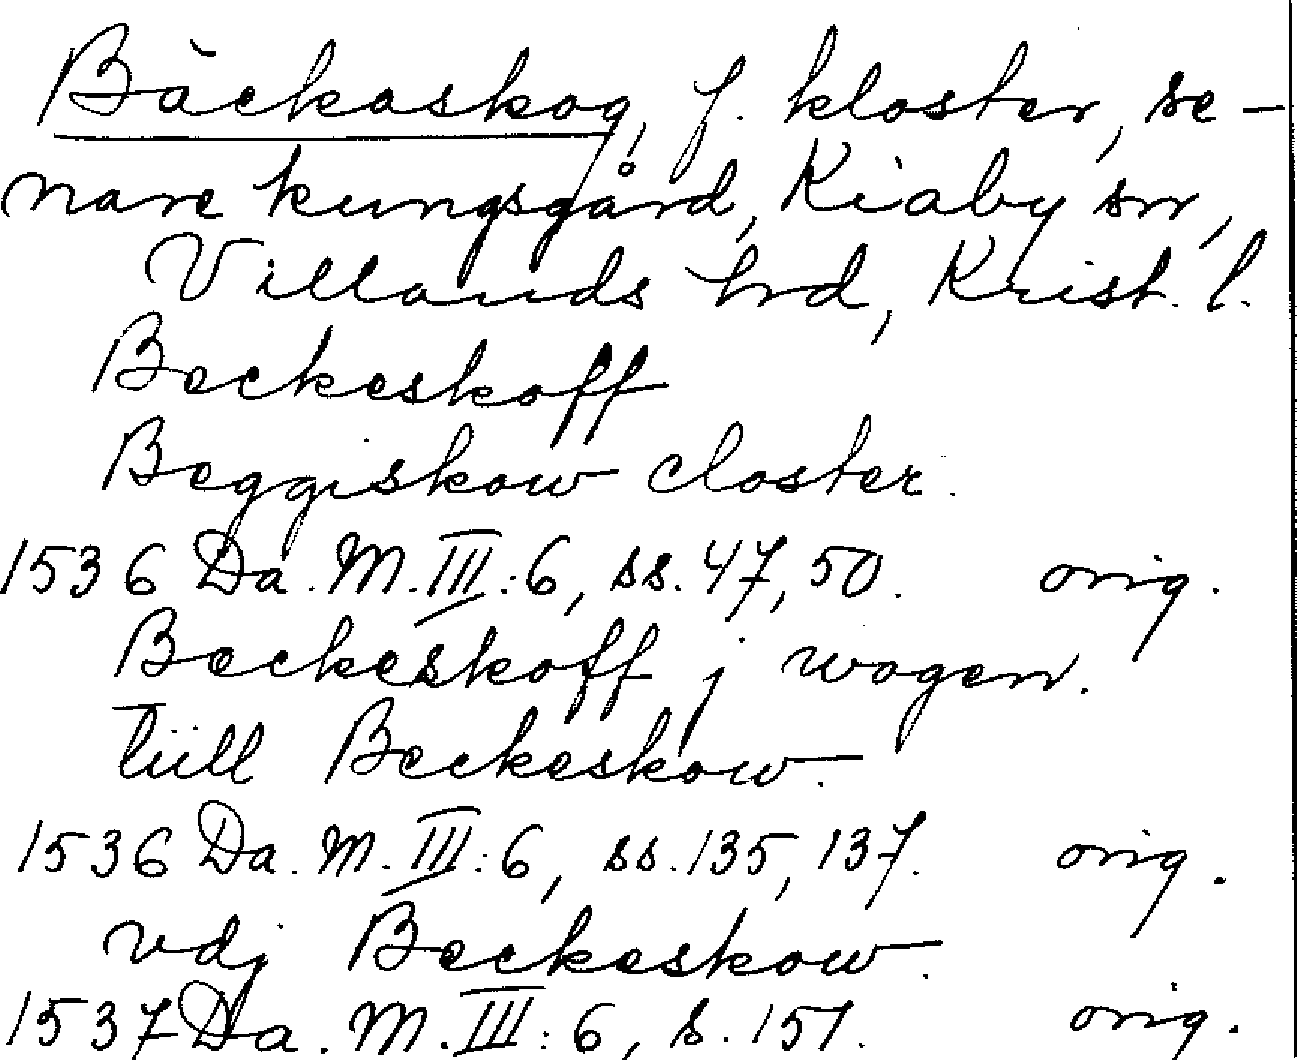 Bäckaskog, f. kloster, se-
nare kungsgård, Kiaby sn,
Villands hrd, Krist. l.
Beckeskoff
Beggiskow closter.
1536 Da. M. III:6, ss. 47, 50. orig.
Beckeskoff j wogen.
tiill Beckeskow.
1536 Da. M. III:6, ss. 135, 137. orig.
vdj Beckeskow.
1537 Da. M. III:6, s. 151. orig.